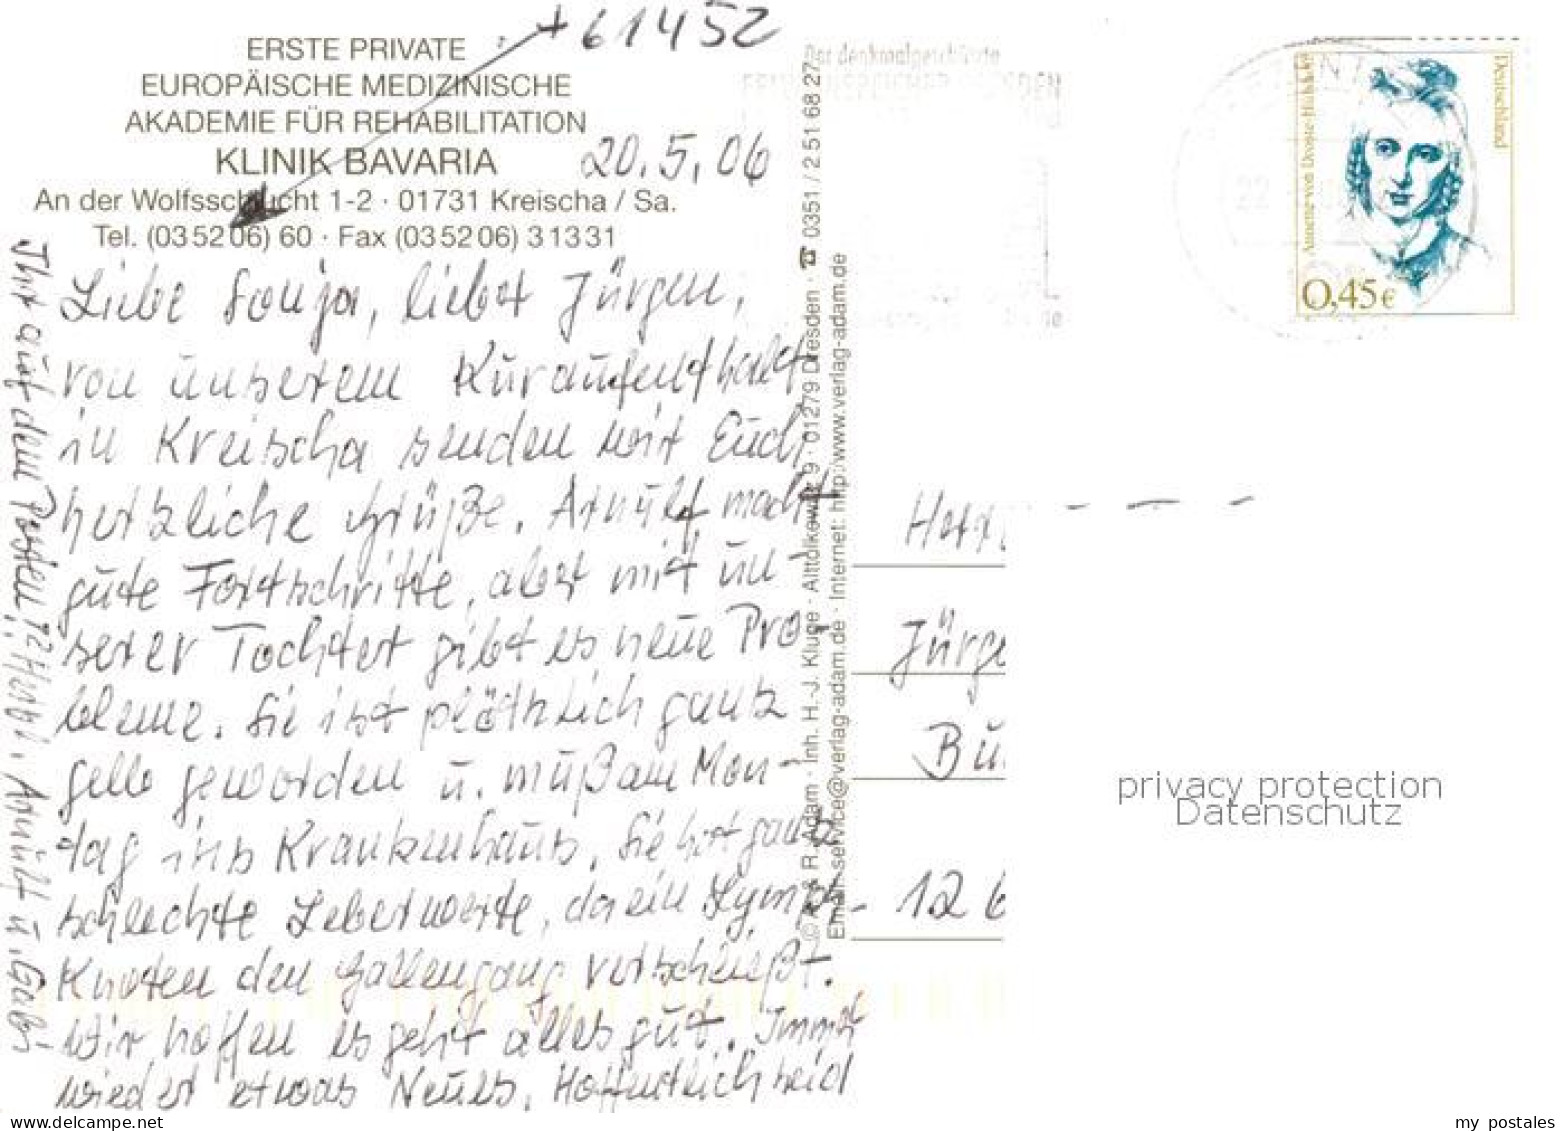 +61452
ERSTE PRIVATE
EUROPÄISCHE MEDIZINISCHE
AKADEMIE FÜR REHABILITATION
KLINIK BAVARIA
An der Wolfsschlucht 1-2 · 01731 Kreischa / Sa.
Tel. (03 52 06) 60 · Fax (03 52 06) 3 13 31
20.5.06
Liebe Sonja, lieber Jürgen,
von unserem Kuraufenthalt
in Kreischa senden wir Euch
herzliche Grüße. Arnulf macht
gute Fortschritte, aber mit un-
serer Tochter gibt es neue Pro-
bleme. Sie ist plötzlich ganz
gelb geworden u. muß am Mon-
tag ins Krankenhaus. Sie hat ganz
schlechte Leberwerte, da ein Lymph-
Knoten den Gallengang verschließt.
Wir hoffen es geht alles gut. Immer
wieder etwas Neues. Hoffentlich seid
Ihr auf dem Posten!? Herzl. Arnulf u. Gabi
R. Adam · Inh. H.-J. Kluge · Alttolkewitz 9 · 01279 Dresden · ☎ 0351 / 2 51 68 27
Email: service@verlag-adam.de · Internet: http:/www.verlag-adam.de
Der denkmalgeschützte
22
Annette von Droste-Hülshoff
Deutschland
0,45 €
Herr
Jürge
Bu
12 6
privacy protection
Datenschutz
www.delcampe.net
my_postales